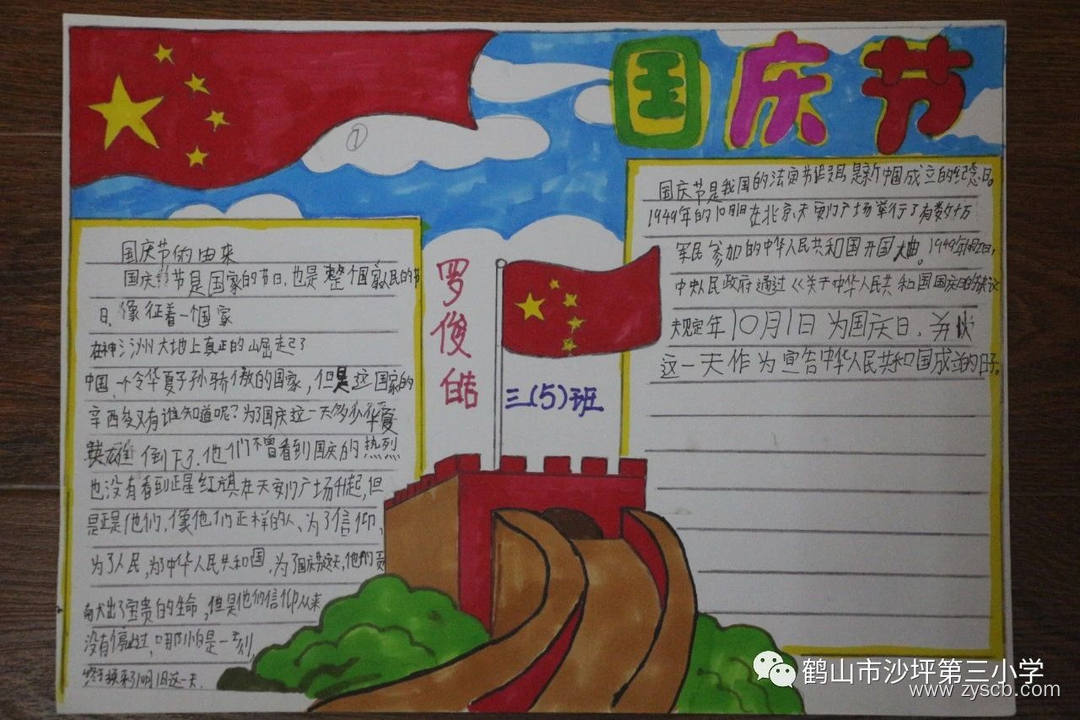 国庆节
①
国庆节的由来
国庆节是国家的节日,也是整个国家人民的节
日,像征着一个国家
在神州大地上真正的崛起了
中国,一个令华夏子孙骄傲的国家,但是这国家的
辛西多又有谁知道呢?为了国庆这一天多少华夏
英雄倒下了.他们不曾看到国庆的热烈
也没有看到五星红旗在天安门广场升起,但
是正是他们,像他们正样的人、为了信仰,
为了人民,为了中华人民共和国,为了国庆这天,他们
大出了宝贵的生命,但是他们信仰从来
没有停止过,哪怕是一刻,
终于换来了10月1日这一天.
罗俊皓
三(5)班
国庆节是我国的法定节日是新中国成立的纪念日。
1949年的10月1日在北京天安门广场举行了有数十万
军民参加的中华人民共和国开国大典。1949年
中央人民政府通过《关于中华人民共和国国庆日的决议
规定年10月1日为国庆日,并以
这一天作为宣告中华人民共和国成立的日子。
鹤山市沙坪第三小学
www.zyscb.com